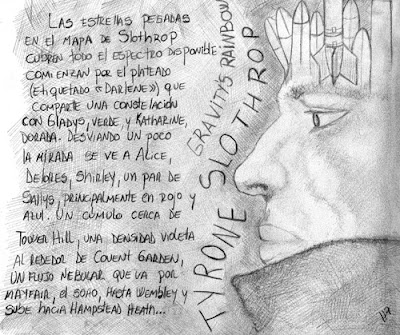 Las estrellas pegadas
en el mapa de Slothrop
cubren todo el espectro disponible
comienzan por el plateado
(etiquetado «Darlene») que
comparte una constelación
con Gladys, verde, y Katharine,
dorada. Desviando un poco
la mirada se ve a Alice,
Delores, Shirley, un par de
Sallys, principalmente en rojo y
azul. Un cúmulo cerca de
Tower Hill, una densidad violeta
alrededor de Covent Garden,
un flujo nebular que va por
Mayfair, el Soho, hasta Wembley y
sube hacia Hampstead Heath...
GRAVITY'S RAINBOW
TYRONE SLOTHROP